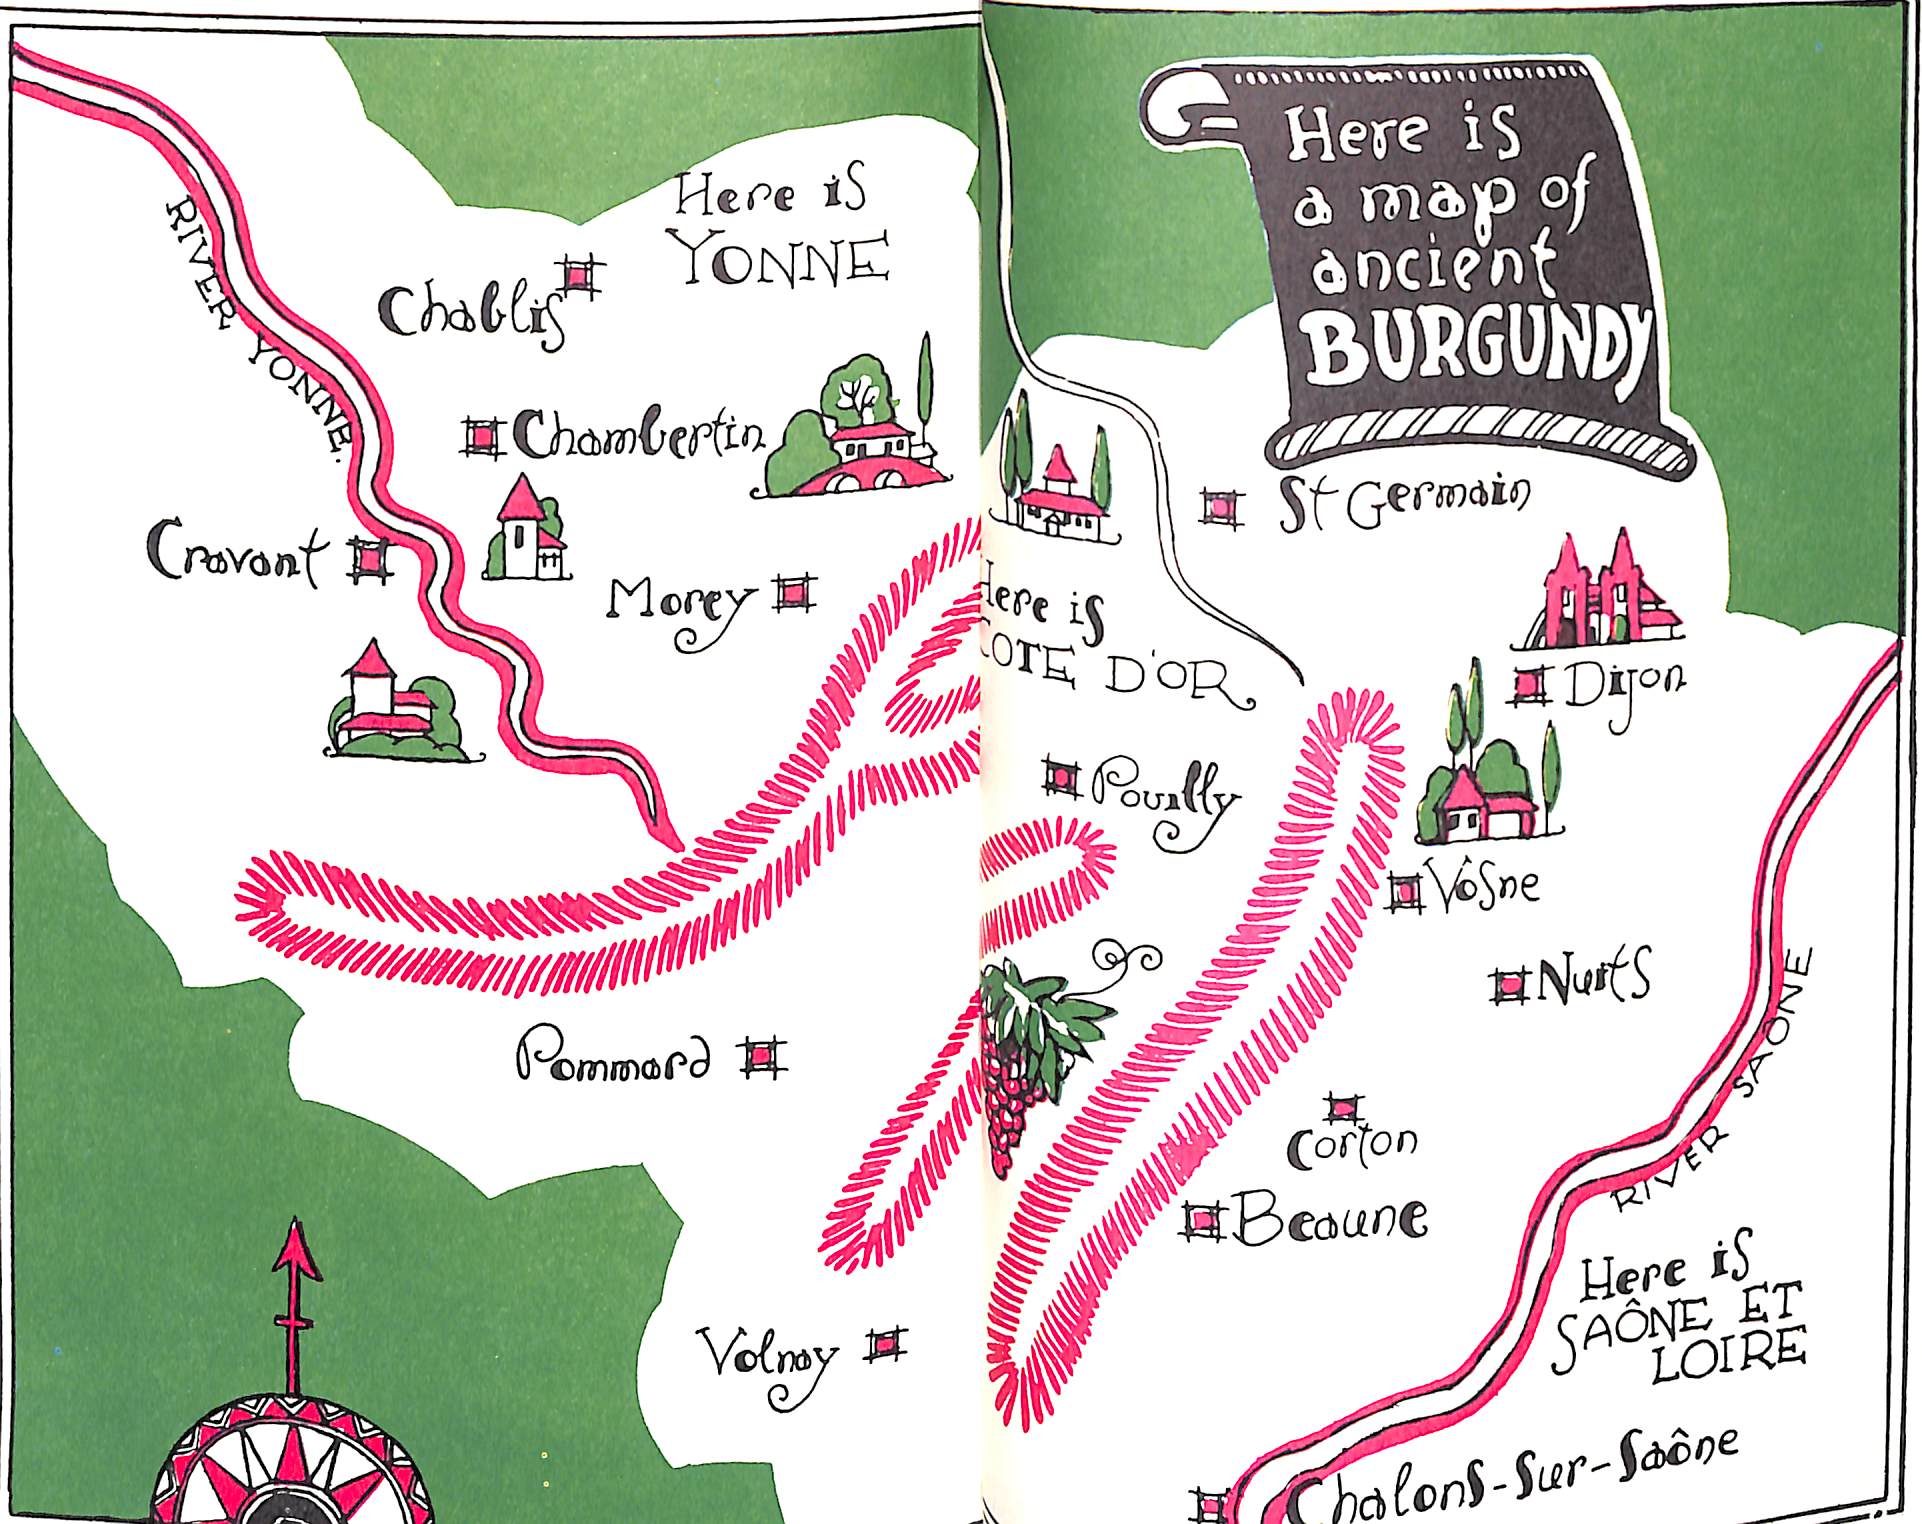 Here is
a map of
ancient
BURGUNDY
Here is
YONNE
RIVER YONNE.
Chablis
Chambertin
Cravant
Morey
St Germain
Here is
COTE D'OR
Dijon
Pouilly
Vôsne
Nuits
Pommard
Corton
Beaune
RIVER SAONE
Here is
SAÔNE ET
LOIRE
Volnay
Chalons-sur-Saône